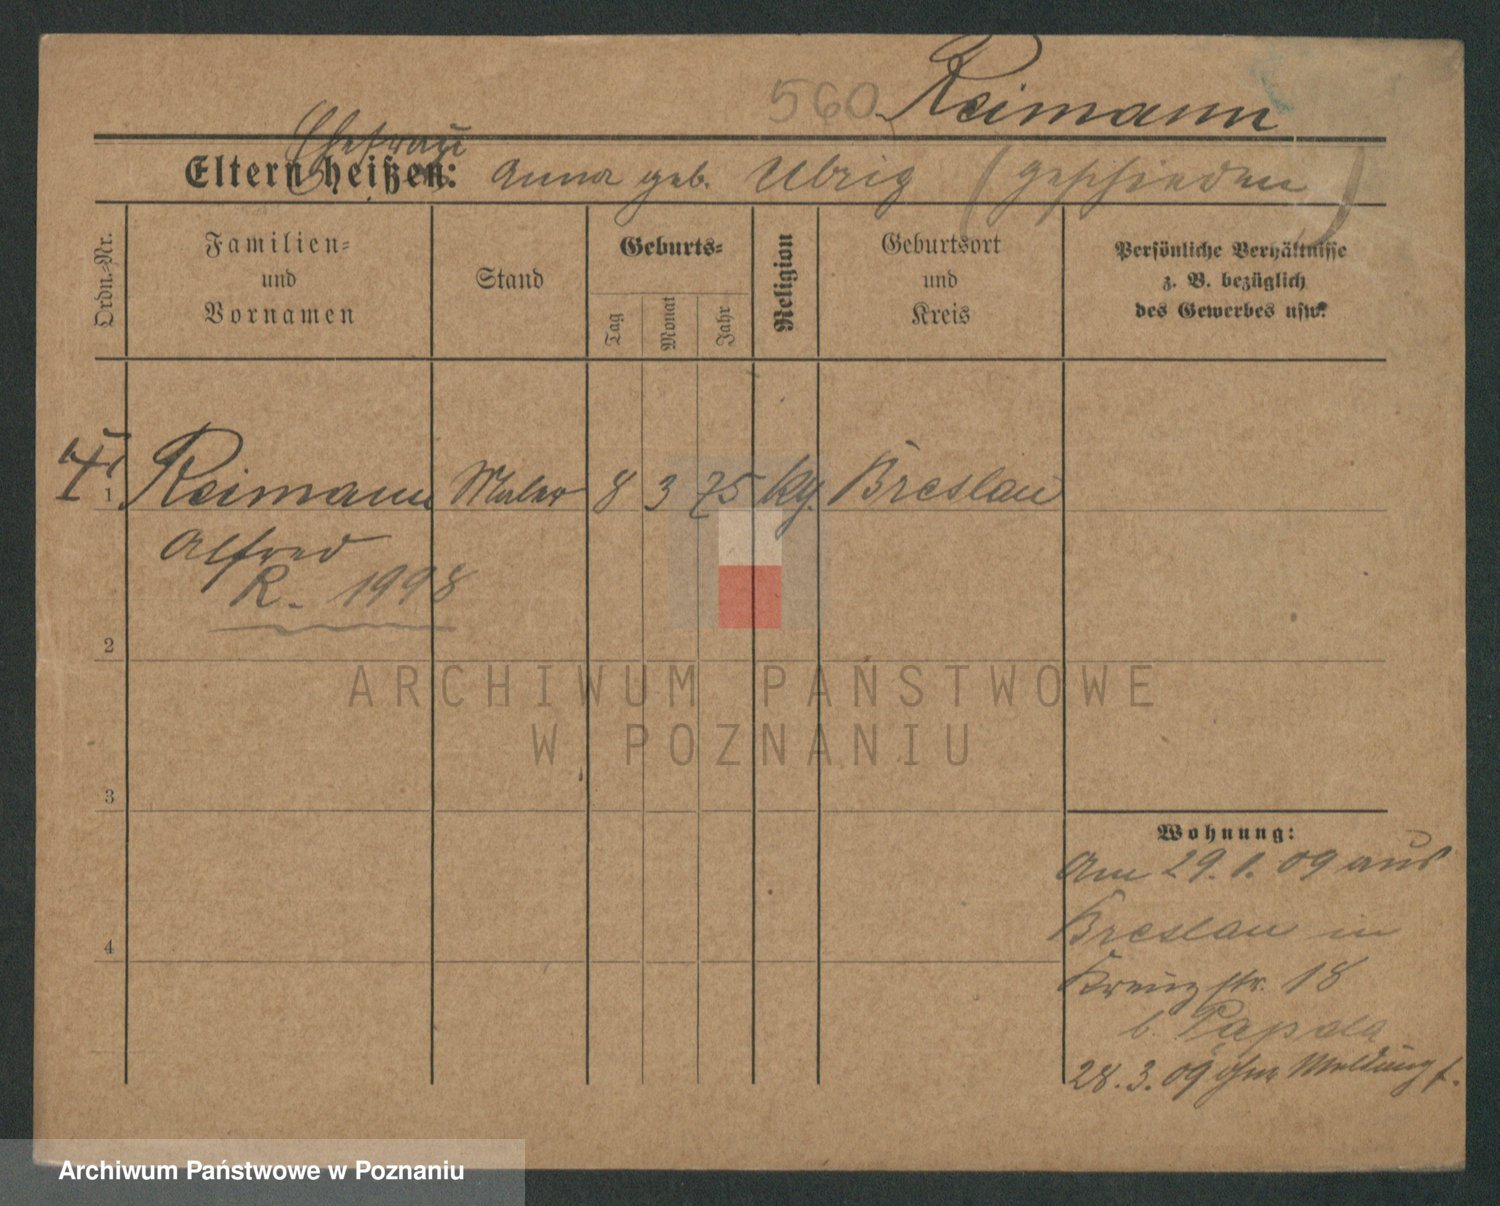 560. Reimann
Ehefrau
Eltern heißen: Anna geb. Ulrig (geschieden)
Ordn.-Nr.
Familien=
und
Vornamen
Stand
Geburts=
Tag
Monat
Jahr
Religion
Geburtsort
und
Kreis
Persönliche Verhältnisse
z. B. bezüglich
des Gewerbes usw.
1 Reimann Maler 8 3 75 kg. Breslau
Alfred
R. 1998
2
3
4
Wohnung:
Am 29.1.09 aus
Breslau in
Kreuzstr. 18
b.
28.3.09 ohne Meldung f.
ARCHIWUM PAŃSTWOWE
W POZNANIU
Archiwum Państwowe w Poznaniu